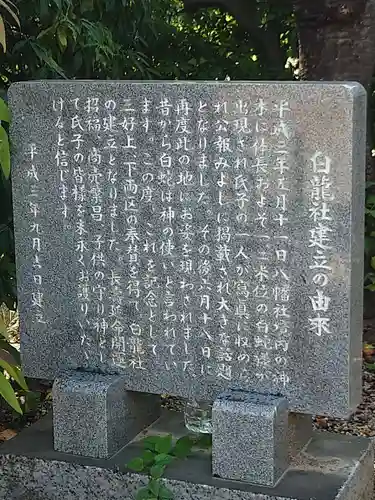 白龍社建立の由来
平成三年五月十一日八幡社境内の神
木に体長およそ一、二米位の白蛇様が
出現され氏子の一人が写真に収めら
れ公報みよしに掲載され大きな話題
となりました。その後五月十八日に
再度此の地にお姿を現わされました
昔から白蛇は神の使いと言われてい
ます。この度、これを記念として
三好上、下両区の奉賛を得て、白龍社
の建立となりました。長寿延命開運
招福、商売繁昌、子供の守り神とし
て氏子の皆様を末永くお護りいただ
けると信じます。
平成三年九月吉日建立